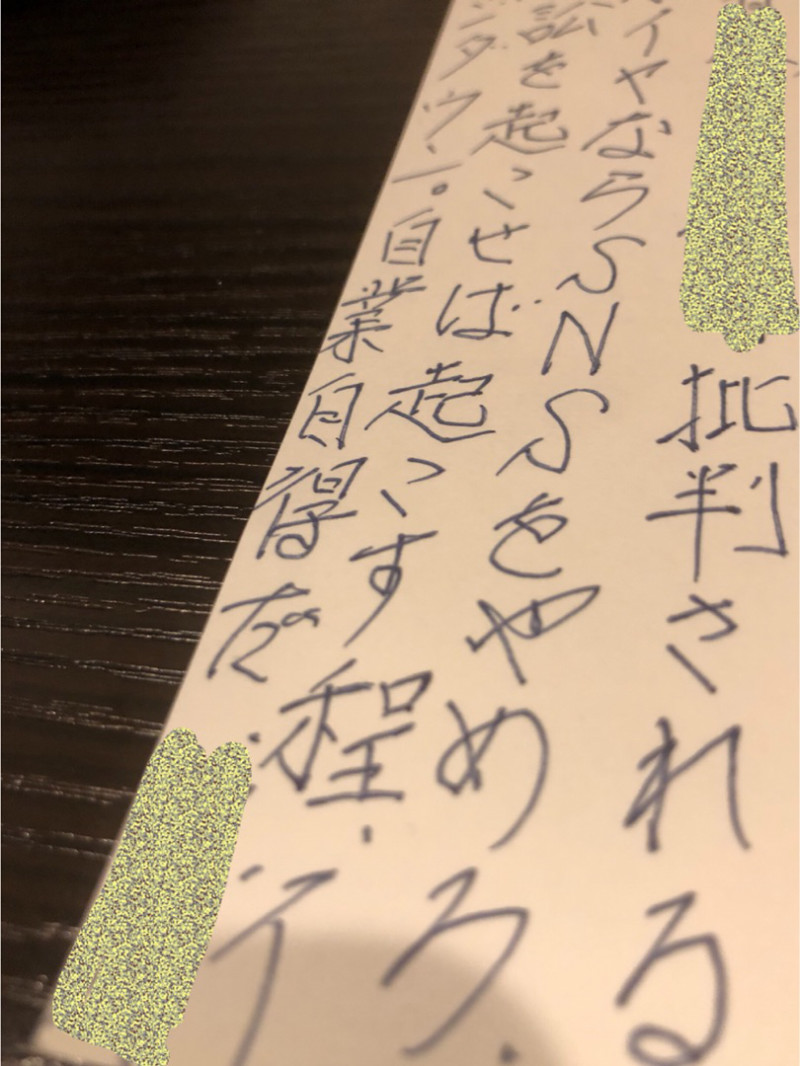 批判される
イヤならSNSをやめろ.
訟を起こせば起こす程.イ
ダウン。自業自得だ